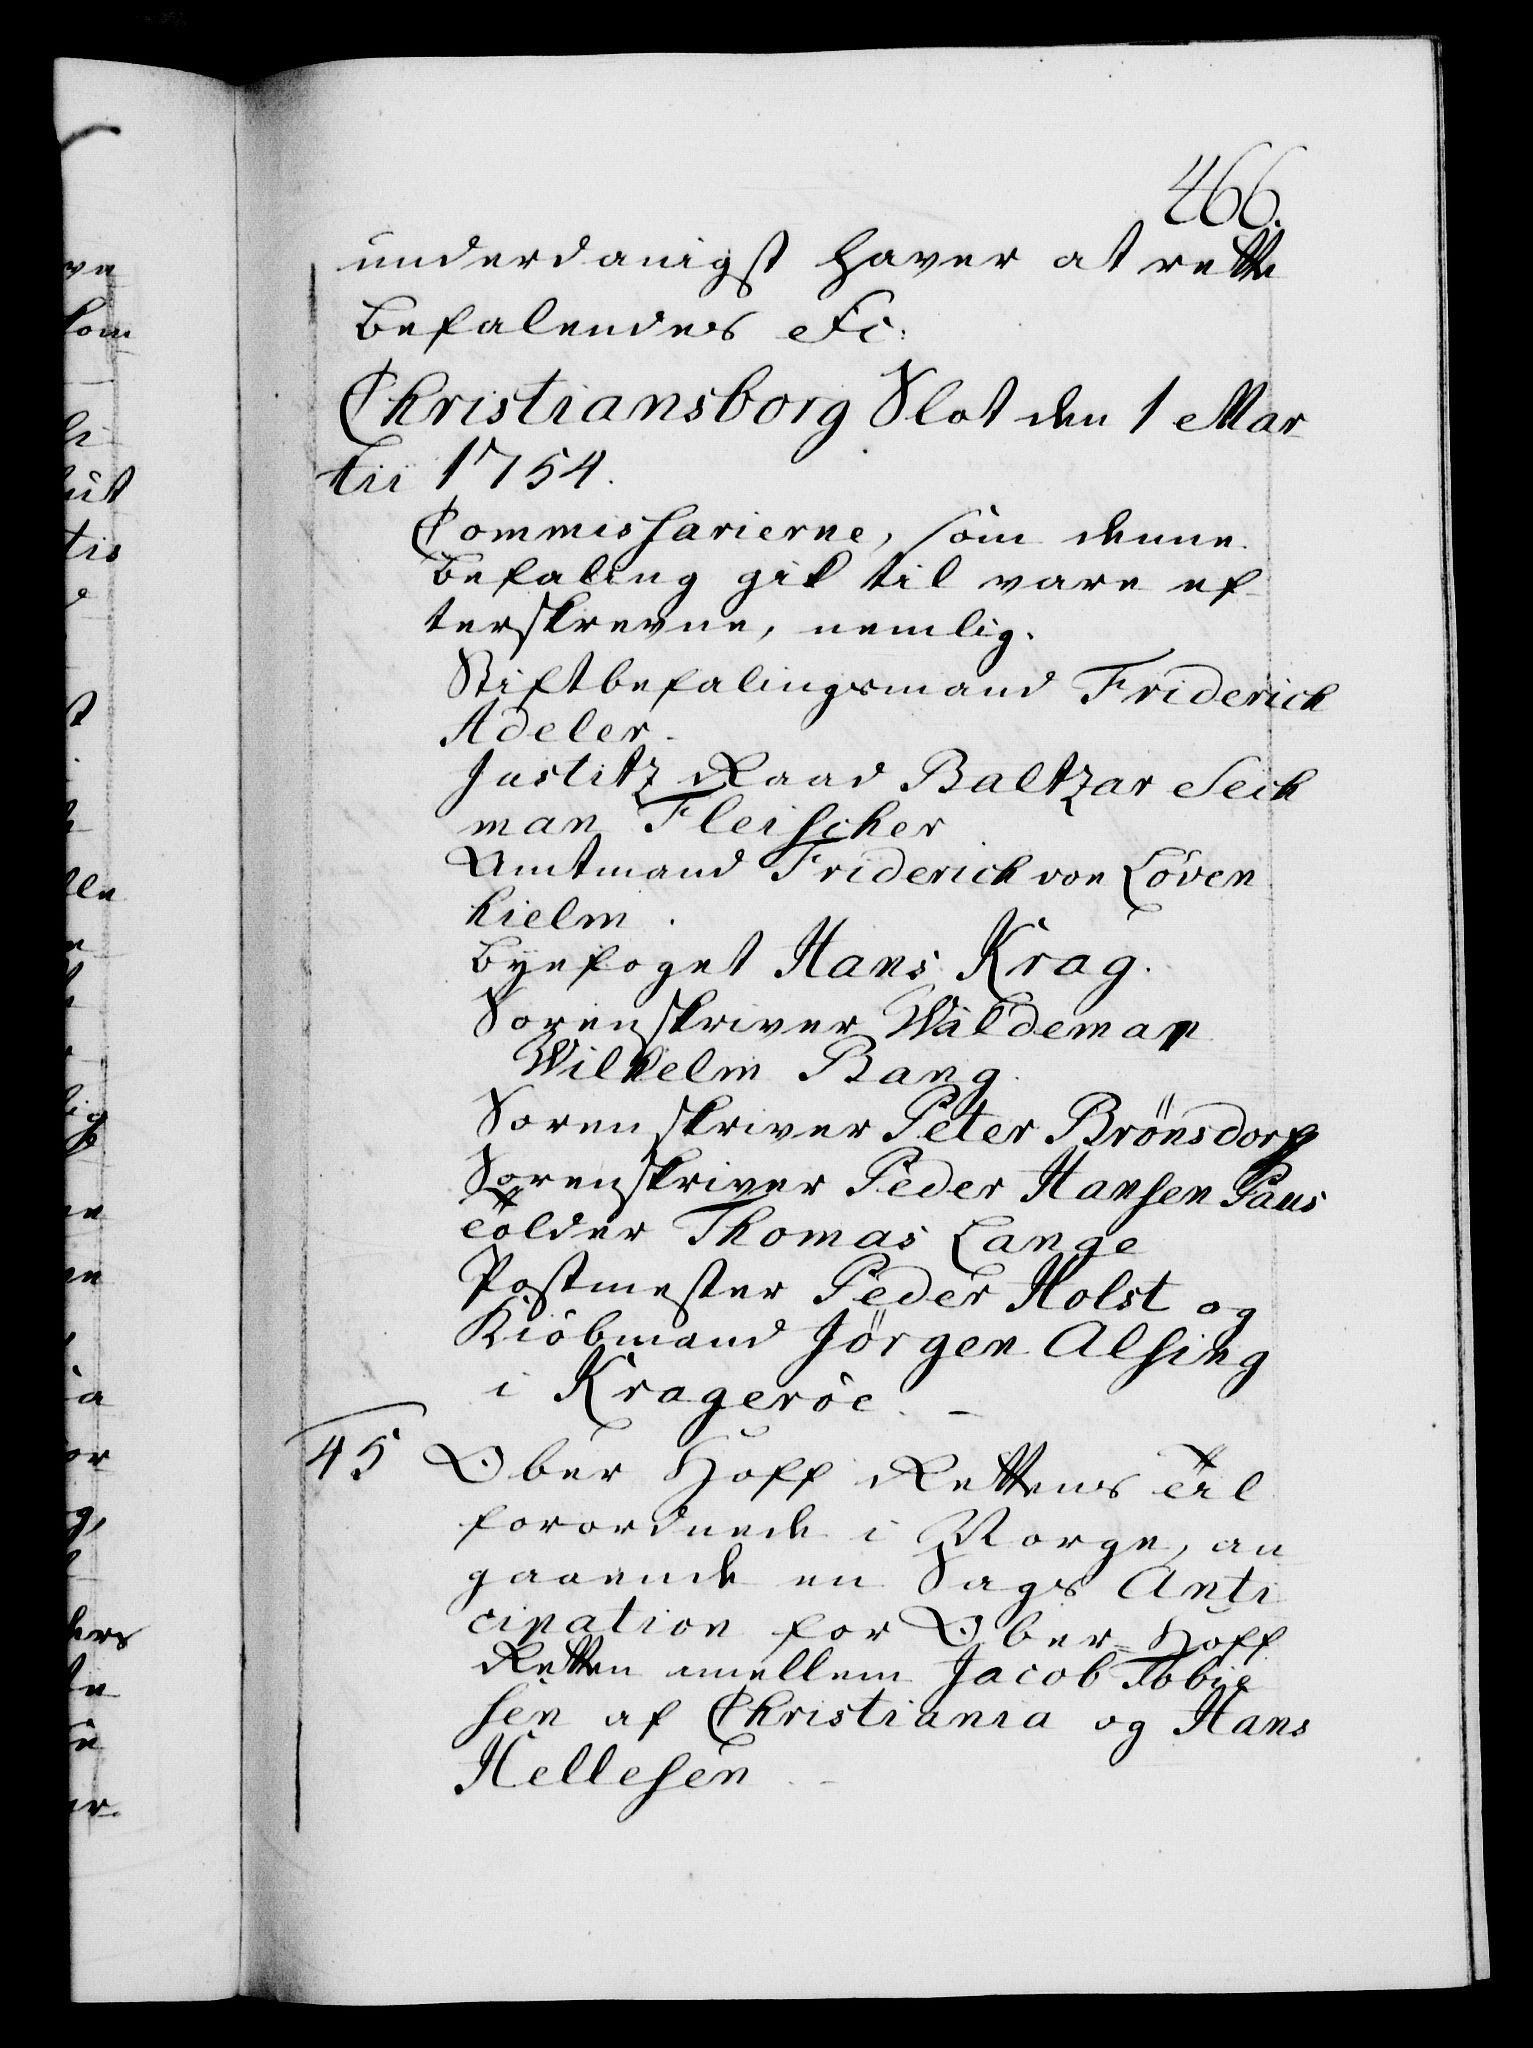 466.
underdanigst haver at rette
befalendes Fc:
Christiansborg Slot den 1 Mar
tii 1754.
Commissarierne, som denne
befaling gik til vare ef
terskrevne, nemlig.
Stiftbefalingsmand Friderich
Adeler.
Justitz Raad Baltzar Seck
man Fleischer
Amtmand Friderich von Löven
hielm.
Byefoget Hans Krag.
Sorenskriver Waldemar
Wilhelm Bang.
Sorenskriver Peter Brönsdorf
Sorenskriver Peder Hansen Paus
Tolder Thomas Lange
Postmester Peder Holst og
Kiöbmand Jörgen Alsing
i Krageröe. -
45 Ober Hoff Rettens Til
forordnede i Norge, an
gaaende en Sags Anti
cipation for Ober-Hoff
Retten imellem Jacob Tobie
sen af Christiania og Hans
Hellesen. -